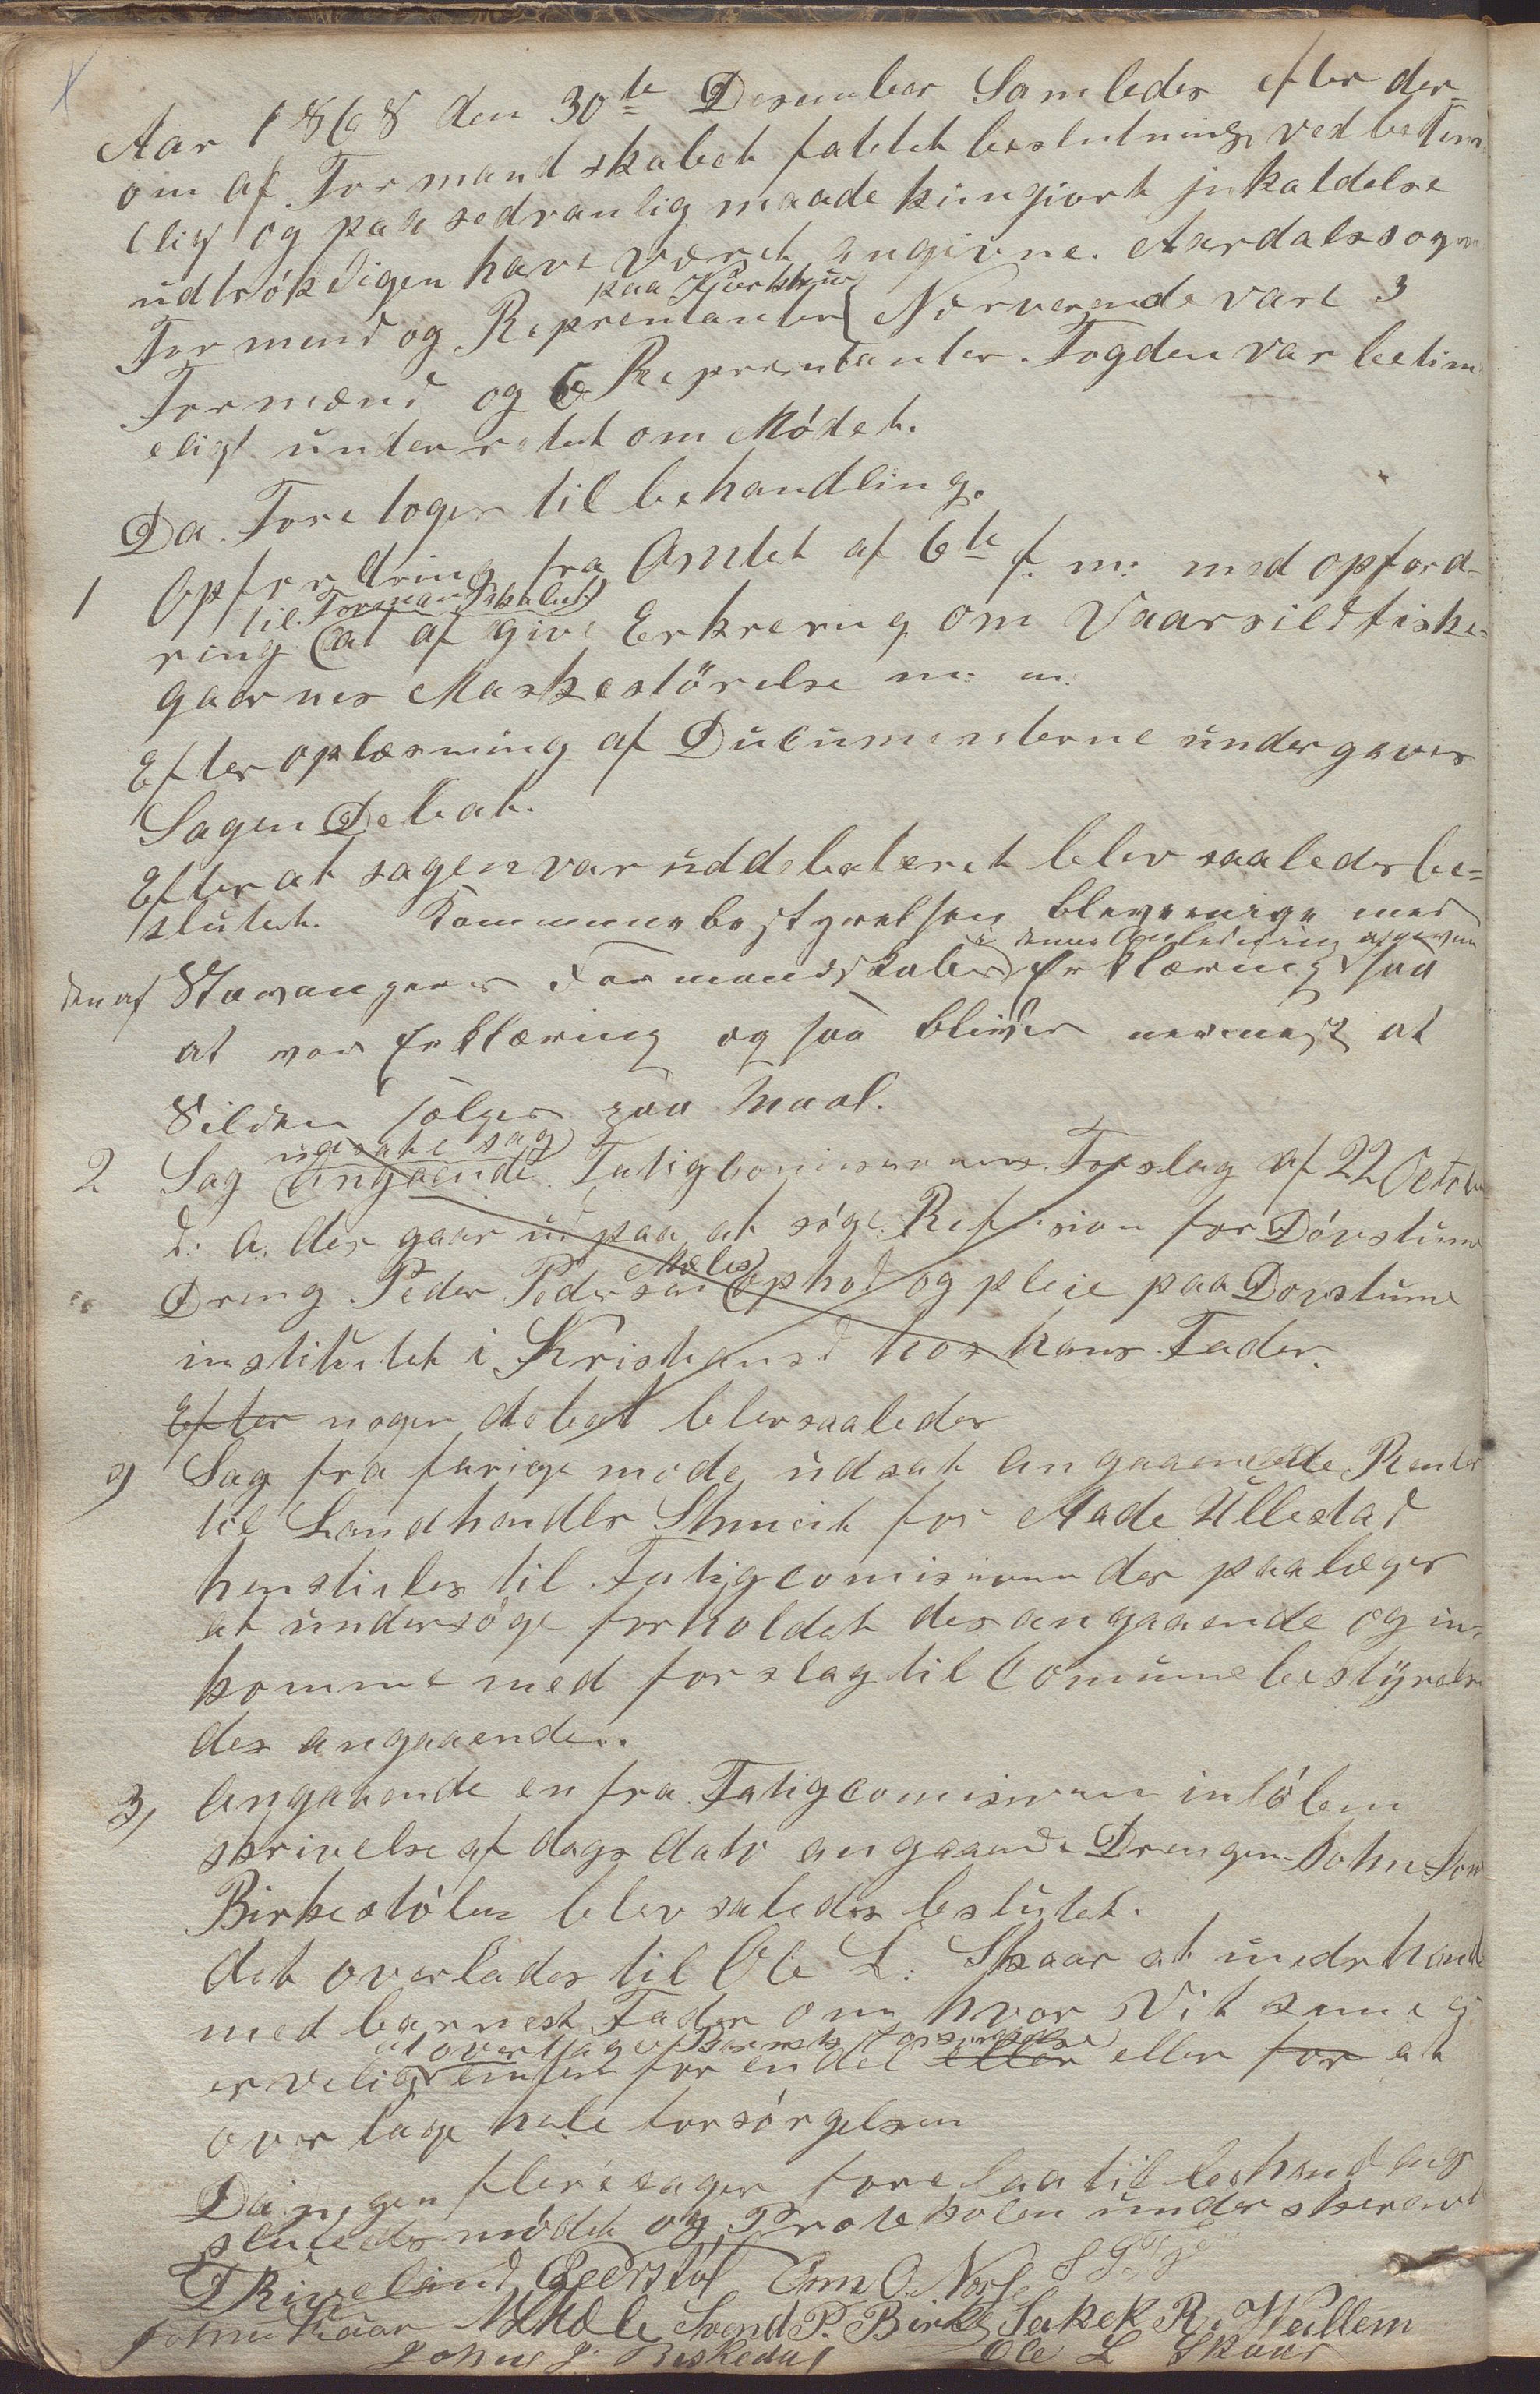 Aar 1868 den 30te Desember Samledes efter der-
om af Formandskabet fattet beslutning, ved betim
eligt og paa sedvanlig maade kungjort jnkaldelse
udtrökeligen have været angivne. Aardalssogns
paa Kjerkhus
Formend og Reprentanter Nerverende vare 3
Formænd og 6 Reprentanter. Fogden var betim
eligt underretet om Mödet.
Da Foretoges til behandling.
1 Opfordring fra Amtet af 6te f. m: med opford-
til Formandskabet
ring at af give Erkrering om Vaarsildfiske-
gaarnes Maskestörelse m: m:
Efter oplæsning af Ducumenterne undergaves
Sagen Debat.
Efter at sagen var uddebateret blev saaledes be-
slutet. Kommunebestyrelsen bleve enige med
i denne Anledning afgiven
den af Stavangers Formandskabs Erklæring saa
at vor Erklæring og saa bliver nermest at
Silden sølges paa Maal.
udsate sag
2 Sag Angaaende Fatigcomisionens Forslag af 22 Octobr
d: A. der gaar ud paa at söge Refusion for Dövstume
Mæles
Dreng Peder Pedersen ophold og pleie paa Dovstume
institutet i Kristiansd hos hans Fader.
Efter nogen debat blev saaledes
2) Sag fra forige mode udsat Angaaende Renter
til Landhandler Shmeit for Aade Ullestad
henstiles til Fatigcomisionen der paalæges
at undersöge forholdet des angaaende og in-
komme med forslag til Comunebestÿrelse
des angaaende.
3, Angaaende en fra Fatigcomisionen inlöben
skrivelse af dags dato angaaende Drengen John
Birkestölen blev saledes beslutet.
det overlades til Ole L: Skaar at underhand
med barnest Fader om hvor Vit samme
at overtage Barnets Forsörgelse
er velig enten for en del eller eller for at
over tage hele forsörgelsen
Da ingen flere sager forelaa til behandling
sluteds mödet og Protokolen underskrevet
TRiveland Geersløf Omn O. Norl
John Skaar Svend P. Birke Sakek R. Wallem
Johne J. Riskedal Ole L Skaar